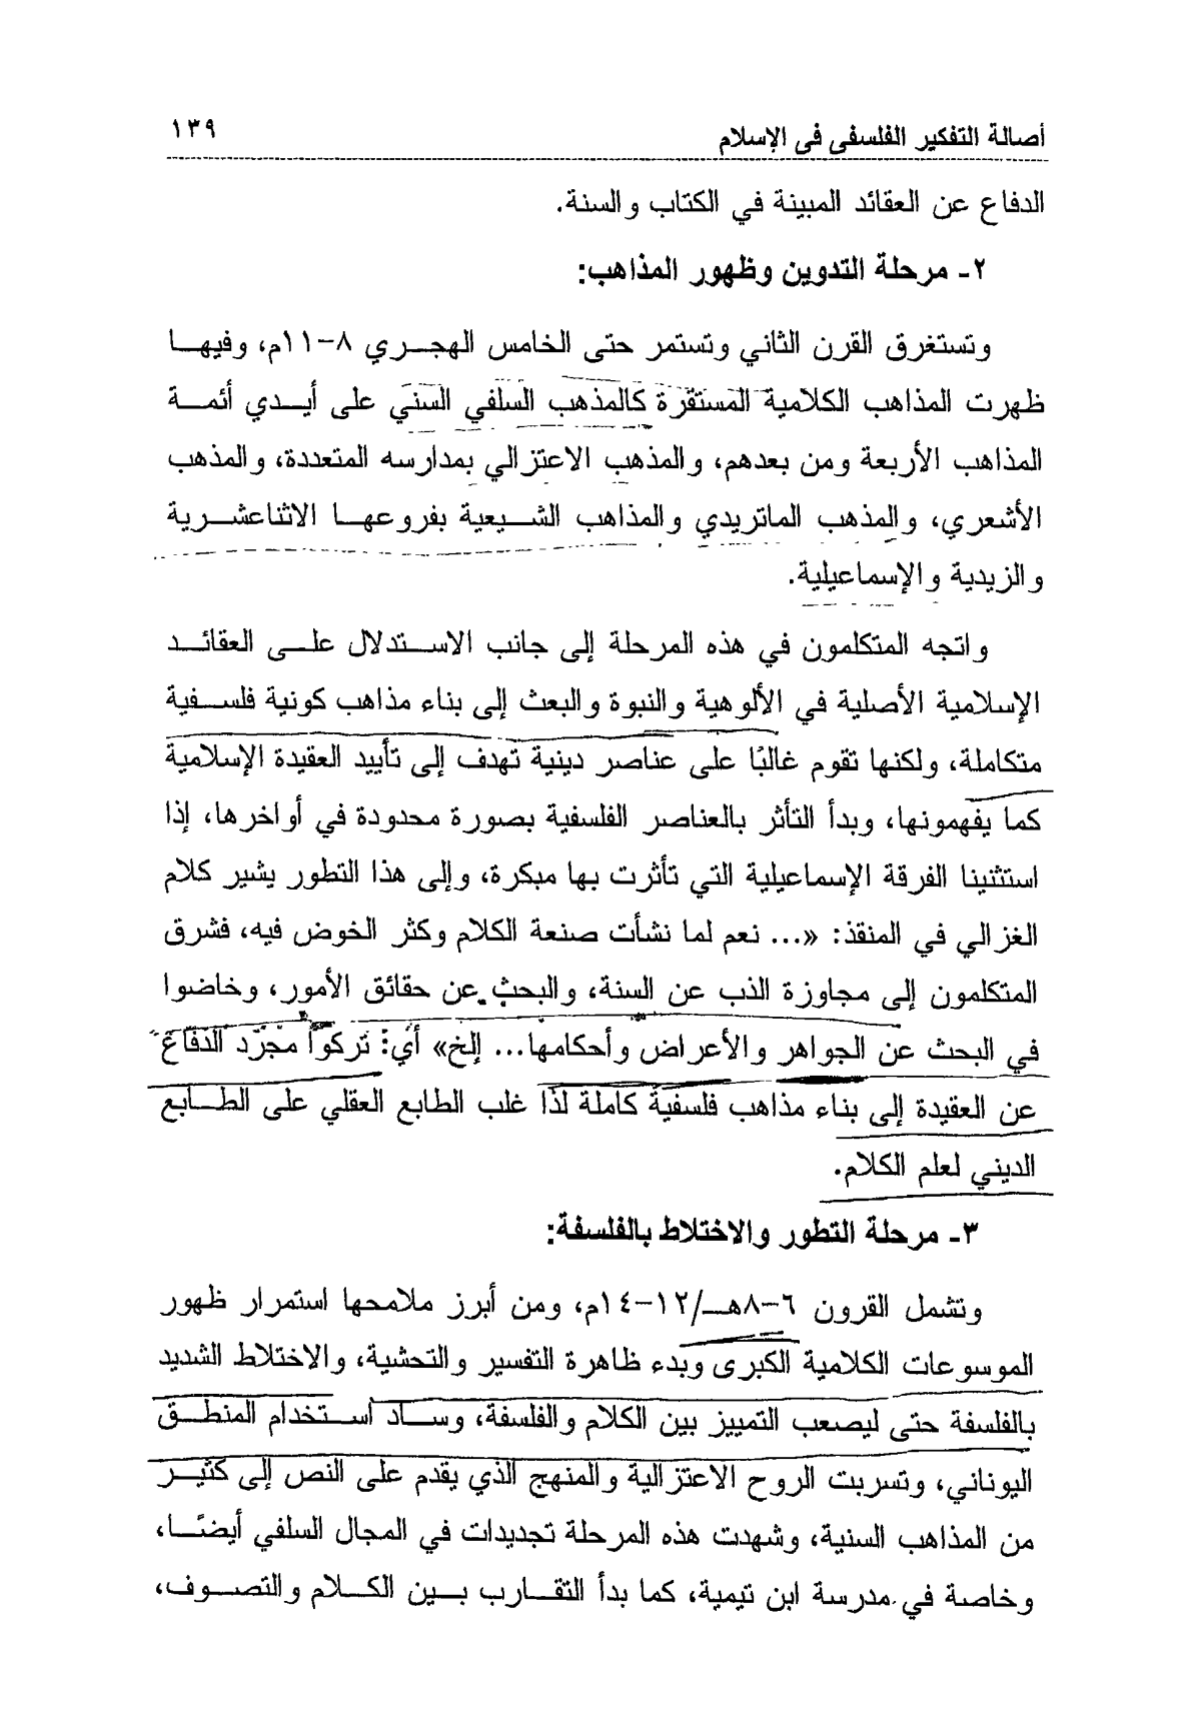 أصالة التفكير الفلسفى فى الإسلام ١٣٩
الدفاع عن العقائد المبينة في الكتاب والسنة.
٢- مرحلة التدوين وظهور المذاهب:
وتستغرق القرن الثاني وتستمر حتى الخامس الهجري ٨-١١م، وفيها
ظهرت المذاهب الكلامية المستقرة كالمذهب السلفي السني على أيدي أئمة
المذاهب الأربعة ومن بعدهم، والمذهب الاعتزالي بمدارسه المتعددة، والمذهب
الأشعري، والمذهب الماتريدي والمذاهب الشيعية بفروعها الاثناعشرية
والزيدية والإسماعيلية.
واتجه المتكلمون في هذه المرحلة إلى جانب الاستدلال على العقائد
الإسلامية الأصلية في الألوهية والنبوة والبعث إلى بناء مذاهب كونية فلسفية
متكاملة، ولكنها تقوم غالبًا على عناصر دينية تهدف إلى تأييد العقيدة الإسلامية
كما يفهمونها، وبدأ التأثر بالعناصر الفلسفية بصورة محدودة في أواخرها، إذا
استثنينا الفرقة الإسماعيلية التي تأثرت بها مبكرة، وإلى هذا التطور يشير كلام
الغزالي في المنقذ: «... نعم لما نشأت صنعة الكلام وكثر الخوض فيه، فشرق
المتكلمون إلى مجاوزة الذب عن السنة، والبحث عن حقائق الأمور، وخاضوا
في البحث عن الجواهر والأعراض وأحكامها... إلخ» أي: تركوا مجرد الدفاع
عن العقيدة إلى بناء مذاهب فلسفية كاملة لذا غلب الطابع العقلي على الطابع
الديني لعلم الكلام.
٣- مرحلة التطور والاختلاط بالفلسفة:
وتشمل القرون ٦-٨هـ/١٢-١٤م، ومن أبرز ملامحها استمرار ظهور
الموسوعات الكلامية الكبرى وبدء ظاهرة التفسير والتحشية، والاختلاط الشديد
بالفلسفة حتى ليصعب التمييز بين الكلام والفلسفة، وساد استخدام المنطق
اليوناني، وتسربت الروح الاعتزالية والمنهج الذي يقدم على النص إلى كثير
من المذاهب السنية، وشهدت هذه المرحلة تجديدات في المجال السلفي أيضًا،
وخاصة في مدرسة ابن تيمية، كما بدأ التقارب بين الكلام والتصوف،